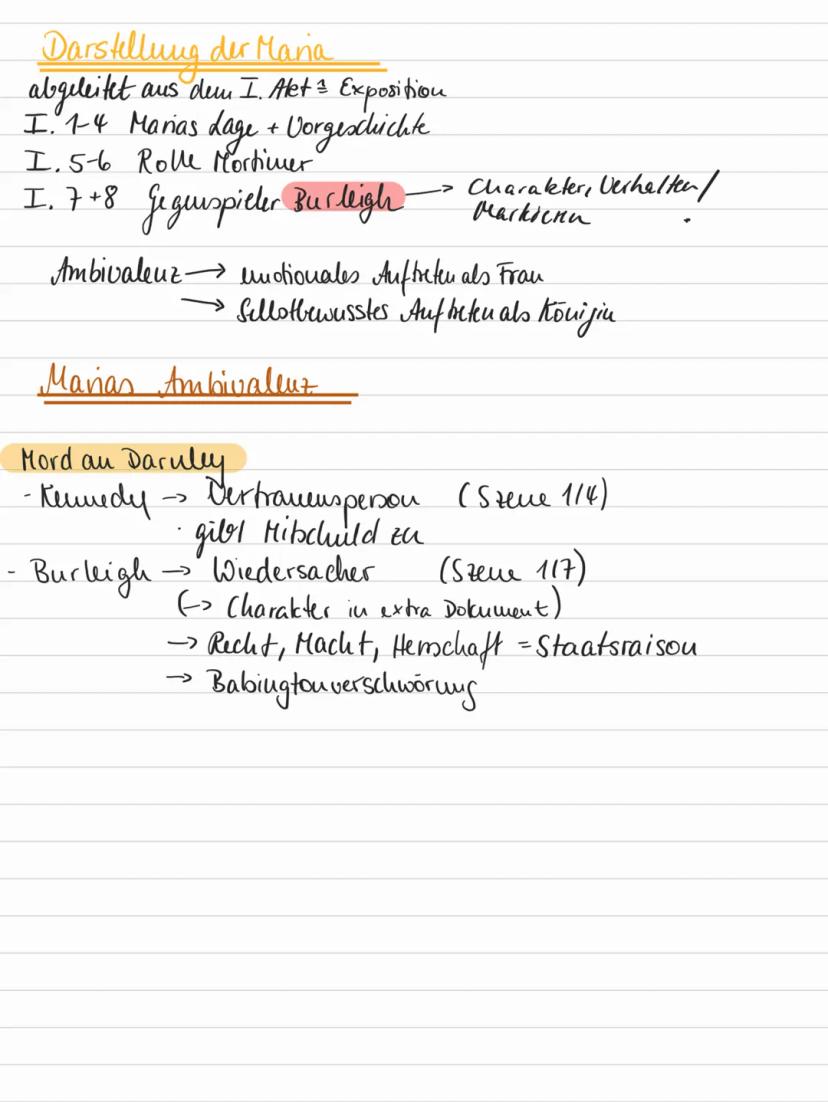 Darstellung der Maria
abgeleitet aus dem I. Akt ≙ Exposition
I. 1-4 Marias Lage + Vorgeschichte
I. 5-6 Rolle Mortimer
I. 7+8 Gegenspieler Burleigh → Charakter, Verhalten/
Markieren .
Ambivalenz → emotionales Auftreten als Frau
→ Selbstbewusstes Auftreten als Königin
Marias Ambivalenz
Mord an Darnley
- Kennedy → Vertrauensperson (Szene 1/4)
· gibt Mitschuld zu
- Burleigh → Wiedersacher (Szene 1/7)
(→ Charakter in extra Dokument)
→ Recht, Macht, Herrschaft = Staatsraison
→ Babingtonverschwörung